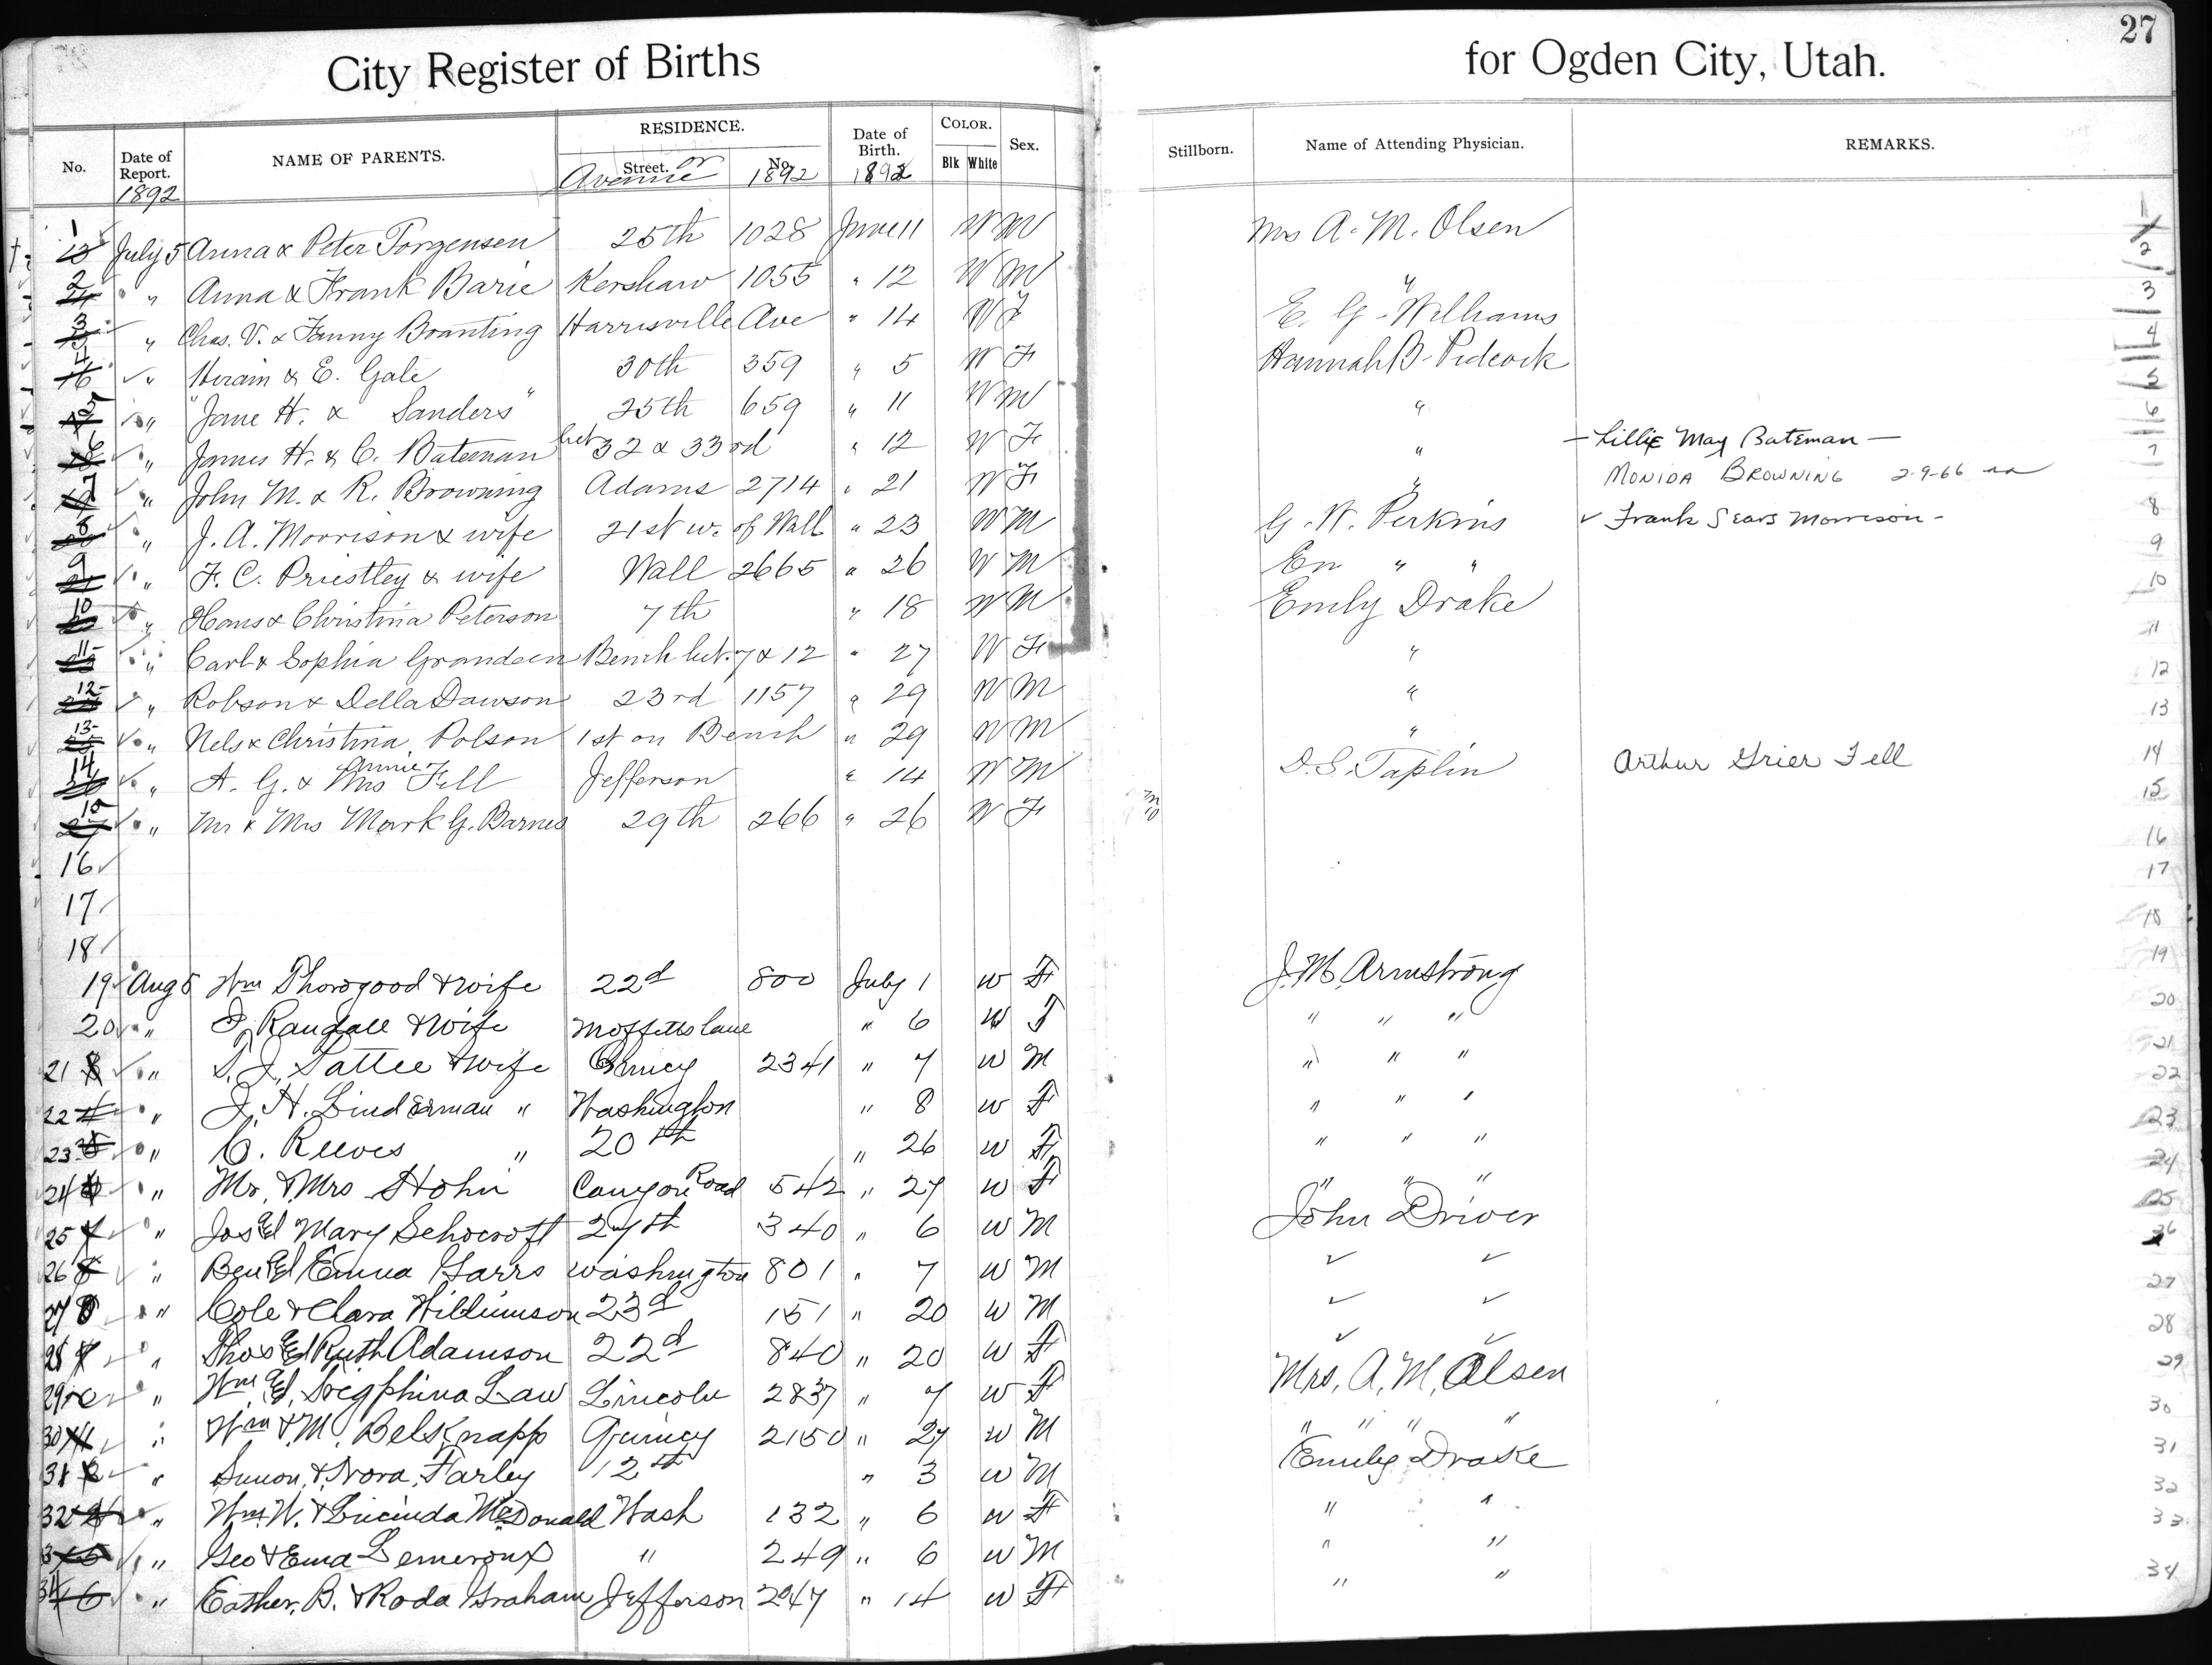 27
City Register of Births for Ogden City, Utah.
No. Date of Report. 1892 NAME OF PARENTS. RESIDENCE. Street. or Avenue No. 1892 Date of Birth. 1892 COLOR. Blk White Sex. Stillborn. Name of Attending Physician. REMARKS.
1 July 5 Anna & Peter Torgensen 25th 1028 June 11 W M Mrs A. M. Olsen 1
2 " Anna & Frank Barie Kershaw 1055 " 12 W M " 2
3 " Chas. V. & Fanny Branting Harrisville Ave " 14 W F E. G. Williams 3
4 " Hiram & E. Gale 30th 359 " 5 W F Hannah B. Pidcock 4
5 " "Jane H. & Sanders" 25th 659 " 11 W M " 5
6 " James H. & C. Bateman bet 32 & 33rd " 12 W F " — Lillie May Bateman — 6
7 " John M. & R. Browning Adams 2714 " 21 W F " MONIDA BROWNING 2-9-66 7
8 " J. A. Morrison & wife 21st w. of Wall " 23 W M G. W. Perkins ✓ Frank Sears Morrison - 8
9 " F. C. Priestley & wife Wall 2665 " 26 W M " " 9
10 " Hans & Christina Peterson 7th " 18 W M Emily Drake 10
11 " Carl & Sophia Grandeen Bench bet. 7 & 12 " 27 W F " 11
12 " Robson & Della Dawson 23rd 1157 " 29 W M " 12
13 " Nels & Christina Polson 1st on Bench " 29 W M " 13
14 " A. G. & Mrs Annie Fell Jefferson " 14 W M D. S. Taplin Arthur Grier Fell 14
15 " Mr & Mrs Mark G. Barnes 29th 266 " 26 W F 15
16 16
17 17
18 18
19 Aug 5 Wm Thorogood & wife 22d 800 July 1 W F J. M. Armstrong 19
20 " J. Randall & Wife Moffetts lane " 6 W F " " " 20
21 " S. J. Sattee & wife Quincy 2341 " 7 W M " " " 21
22 " J. H. Linderman " Washington " 8 W F " " " 22
23 " C. Reeves " 20th " 26 W F " " " 23
24 " Mr. & Mrs Hohn Canyon Road 542 " 27 W F " " " 24
25 " Jos & Mary Schocroft 27th 340 " 6 W M John Driver 25
26 " Ben & Emma Garrs Washington 801 " 7 W M ✓ ✓ 26
27 " Cole & Clara Williimson 23d 151 " 20 W M ✓ ✓ 27
28 " Thos & Ruth Adamson 22d 840 " 20 W F ✓ ✓ 28
29 " Wm & Law Lincoln 2837 " 7 W F Mrs. A. M. Olsen 29
30 " Wm & M. Belsknapp Quincy 2150 " 27 W M " " " " 30
31 " Simon, & Nora, Farley 12th " 3 W M Emily Drake 31
32 " Wm. W. & Lucinda McDonald Wash 132 " 6 W F " " 32
33 " Geo & Ema Lemeroux " 249 " 6 W M " " 33
34 " Eather, B. & Roda Graham Jefferson 2247 " 14 W F " " 34